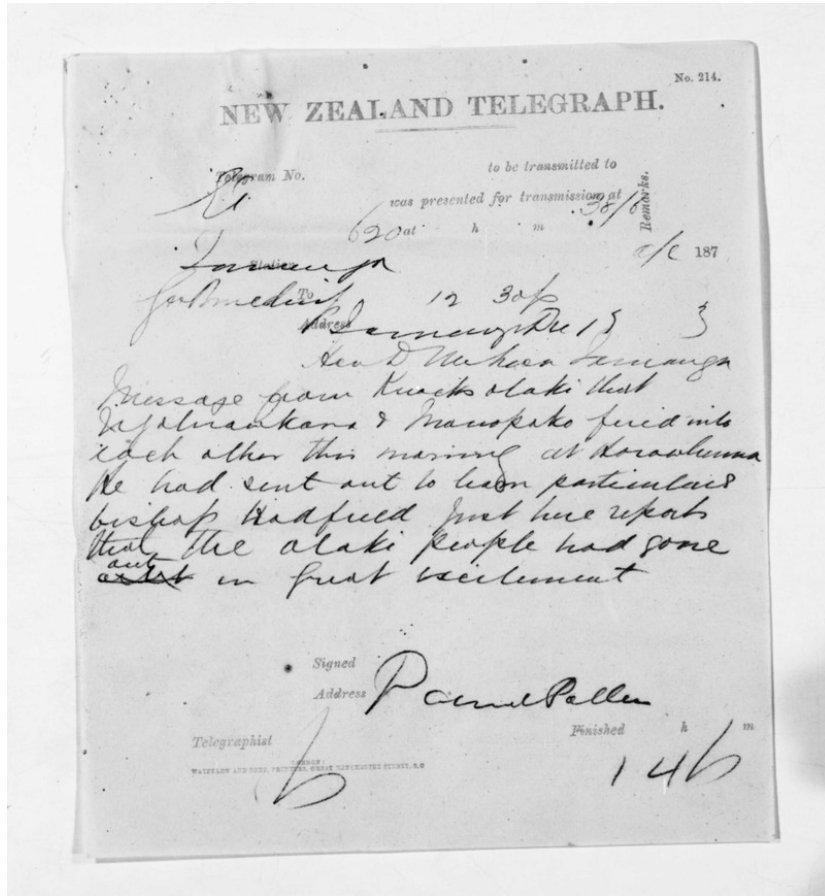 No. 214.
NEW ZEALAND TELEGRAPH.
Telegram No. to be transmitted to
was presented for transmission at
Remarks.
620 at h m
Station 187
To 12 30 p
Address Dec 18 3
Hon D McLean
Message from Knocks otaki that
& Muaupoko fired into
each other this morning at Horowhenua
He had sent out to learn particulars
bishop Hadfield just here reports
that the otaki people had gone
out in great excitement
Signed
Address Daniel Pollen
Telegraphist Finished h m
LONDON:
WATERLOW AND SONS, PRINTERS, GREAT WINCHESTER STREET, E.C
1 46